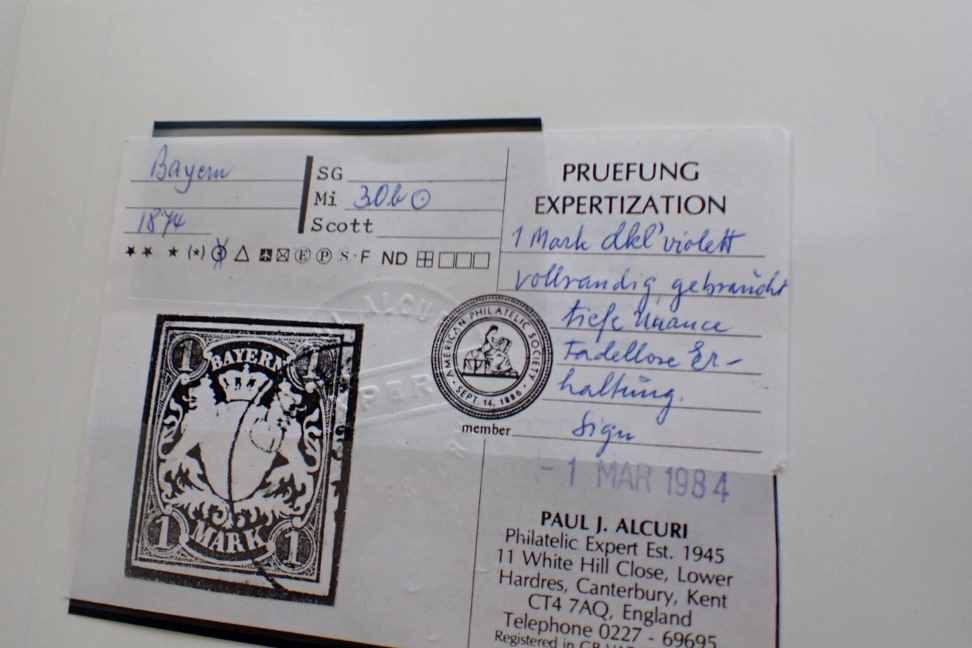 Bayern
SG
Mi 30b ⊙
1874
Scott
★★ ★ (★) ⊙ △ Ⓔ Ⓟ S · F ND
PRUEFUNG
EXPERTIZATION
1 Mark dkl'violett
vollrandig gebraucht
tiefe Nuance
Fadellose Er-
haltung.
Sign
AMERICAN PHILATELIC SOCIETY
· SEPT. 14, 1886 ·
member
- 1 MAR 1984
PAUL J. ALCURI
Philatelic Expert Est. 1945
11 White Hill Close, Lower
Hardres, Canterbury, Kent
CT4 7AQ, England
Telephone 0227 - 69695
Registered in GB
1 BAYERN 1
1 MARK 1